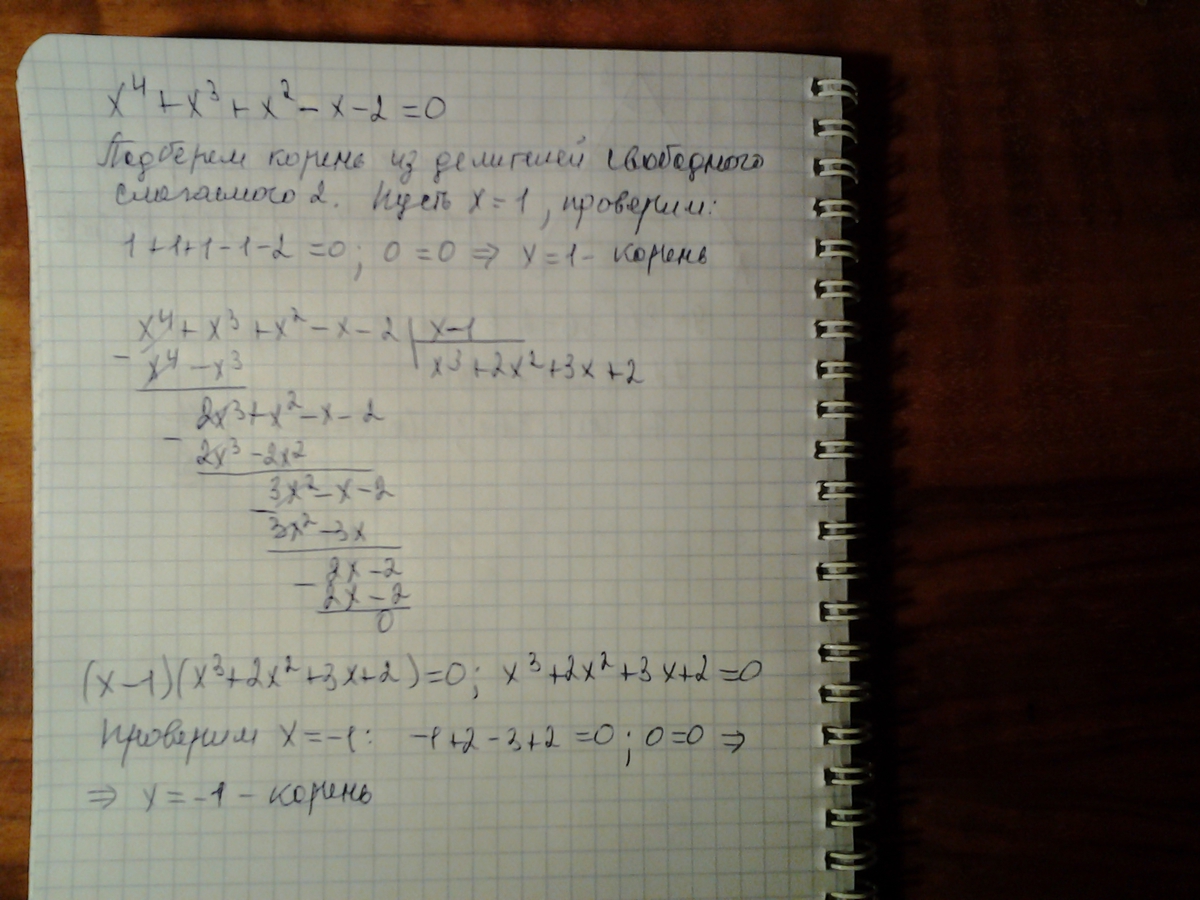 x⁴ + x³ + x² - x - 2 = 0
Подберем корень из делителей свободного
слагаемого 2. Пусть x = 1, проверим:
1+1+1-1-2 = 0; 0 = 0 ⇒ x = 1 - корень
x⁴ + x³ + x² - x - 2 | x-1
- x⁴ - x³ | x³ + 2x² + 3x + 2
2x³ + x² - x - 2
- 2x³ - 2x²
3x² - x - 2
- 3x² - 3x
2x - 2
- 2x - 2
0
(x-1)(x³+2x²+3x+2) = 0; x³+2x²+3x+2 = 0
Проверим x = -1: -1+2-3+2 = 0; 0 = 0 ⇒
⇒ x = -1 - корень